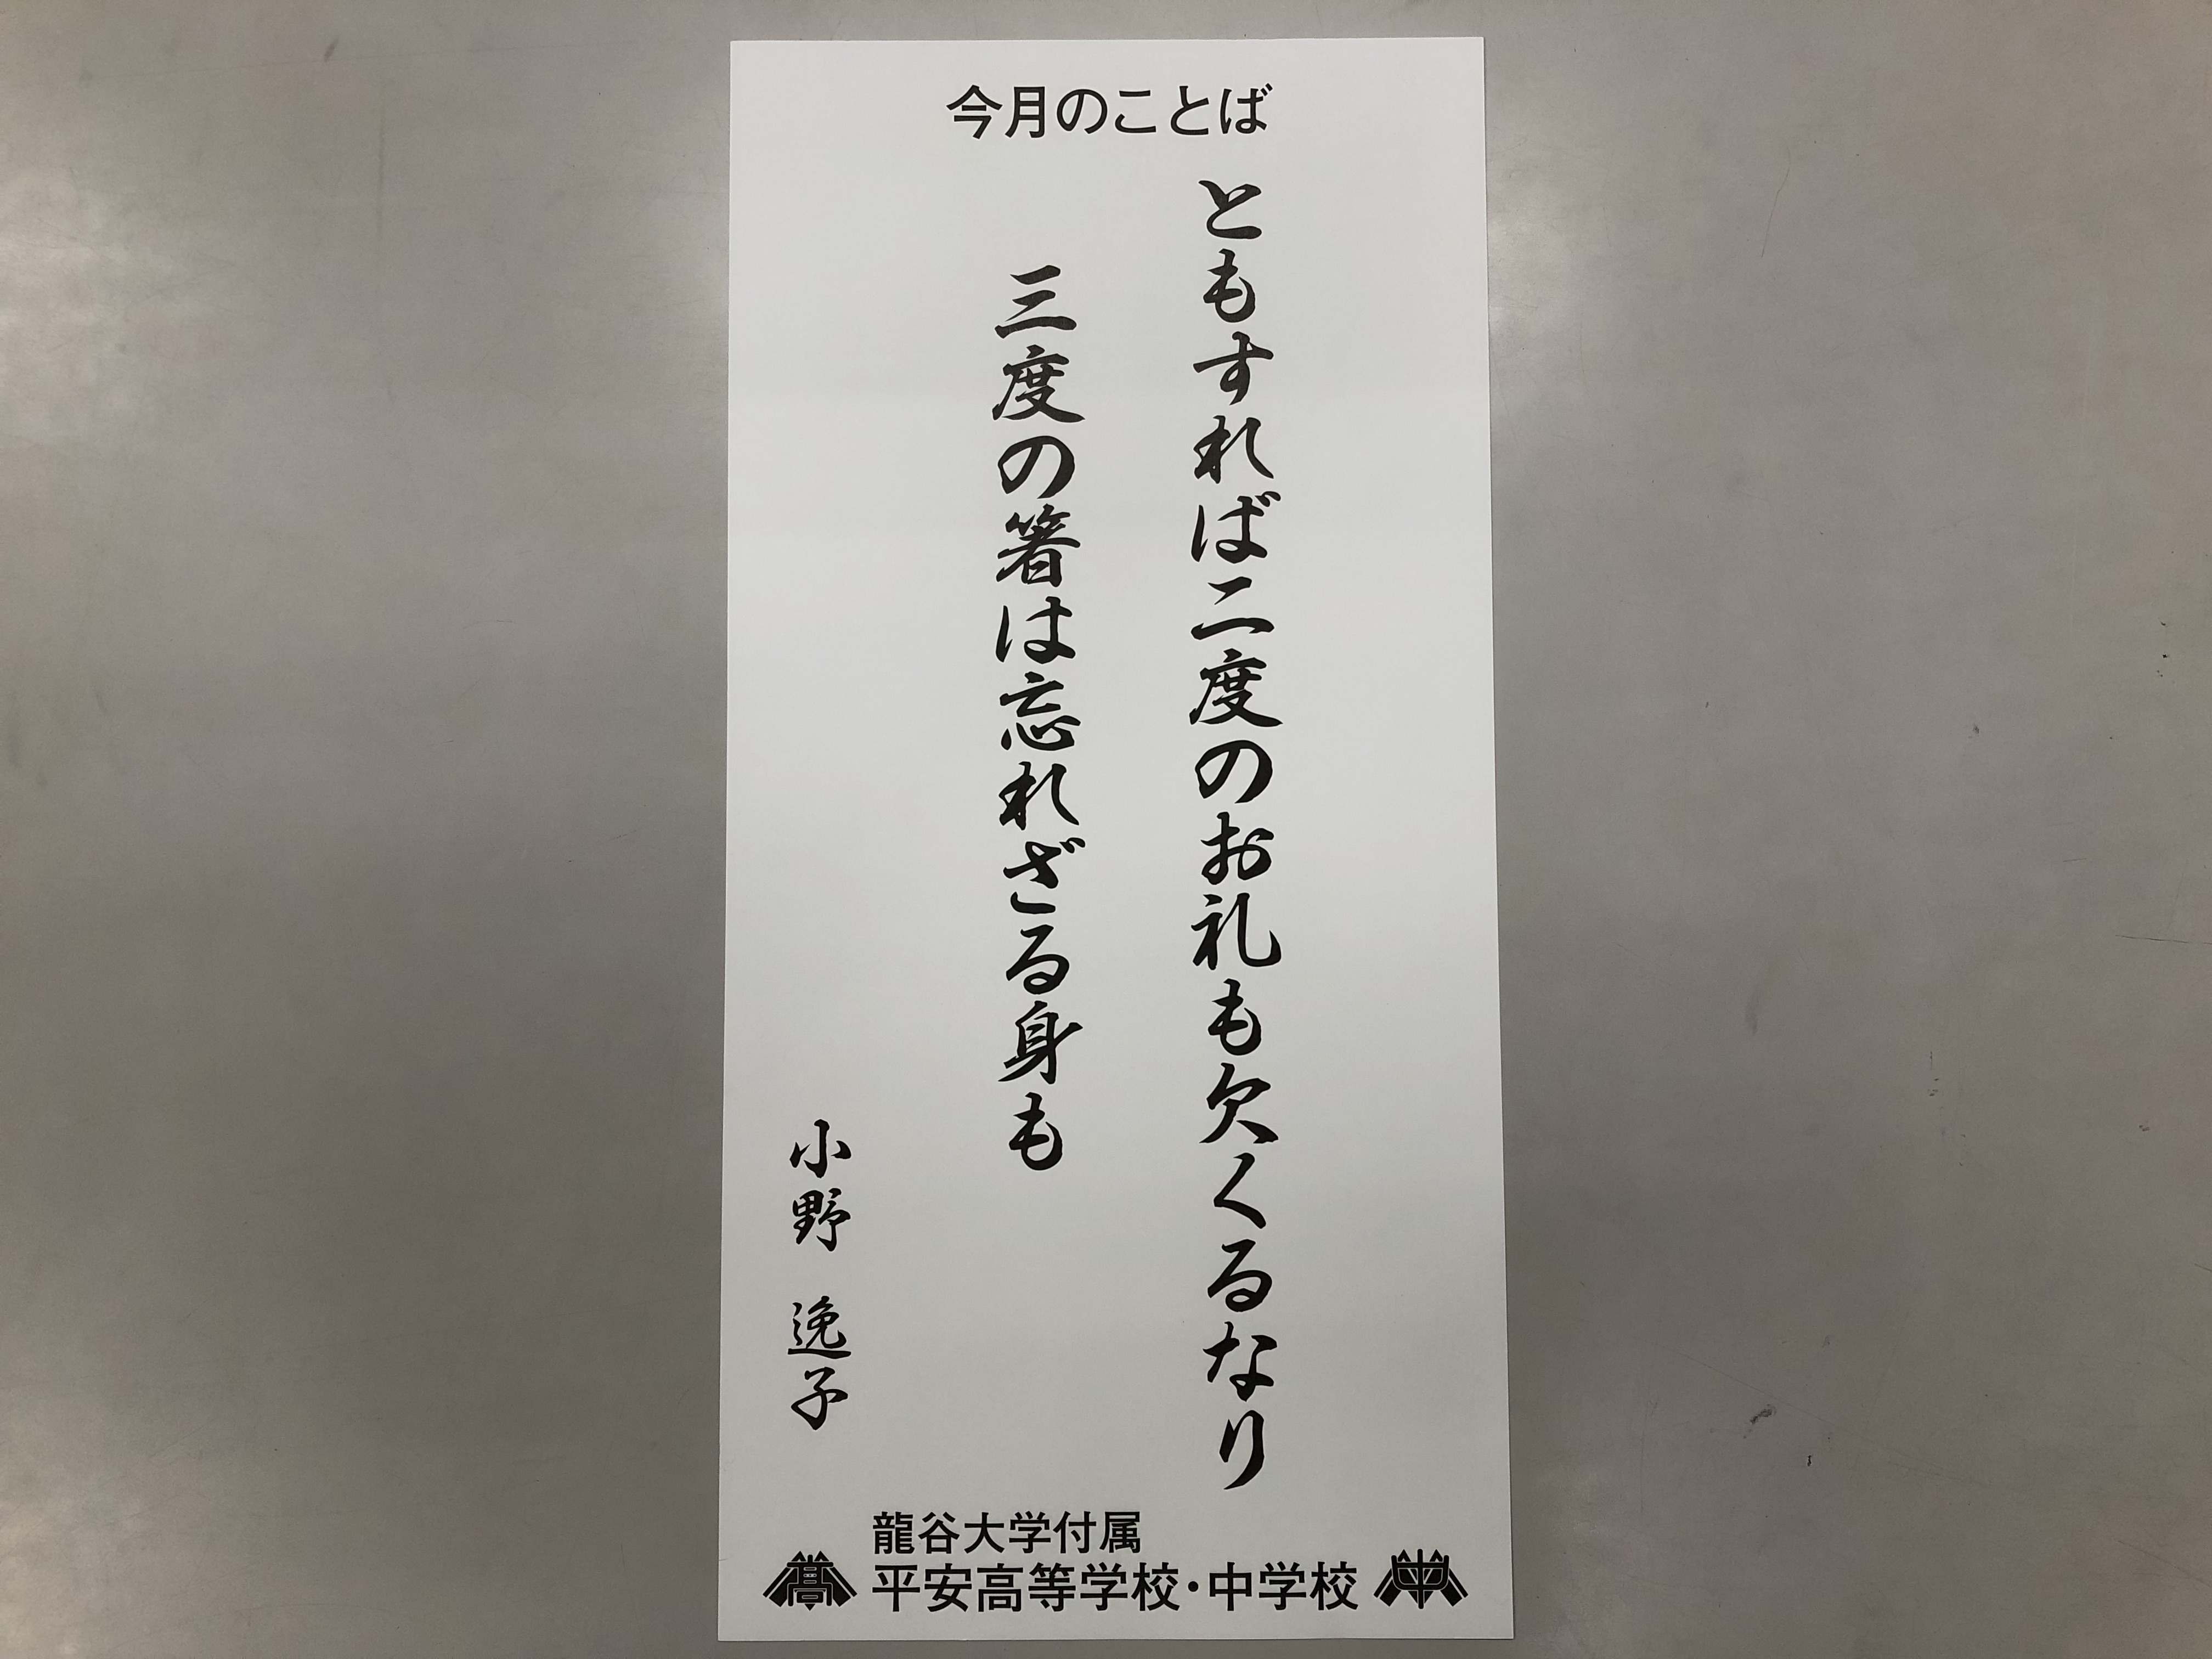 今月のことば
ともすれば二度のお礼も欠くるなり
三度の箸は忘れざる身も
小野 逸子
龍谷大学付属
平安高等学校・中学校
高
中